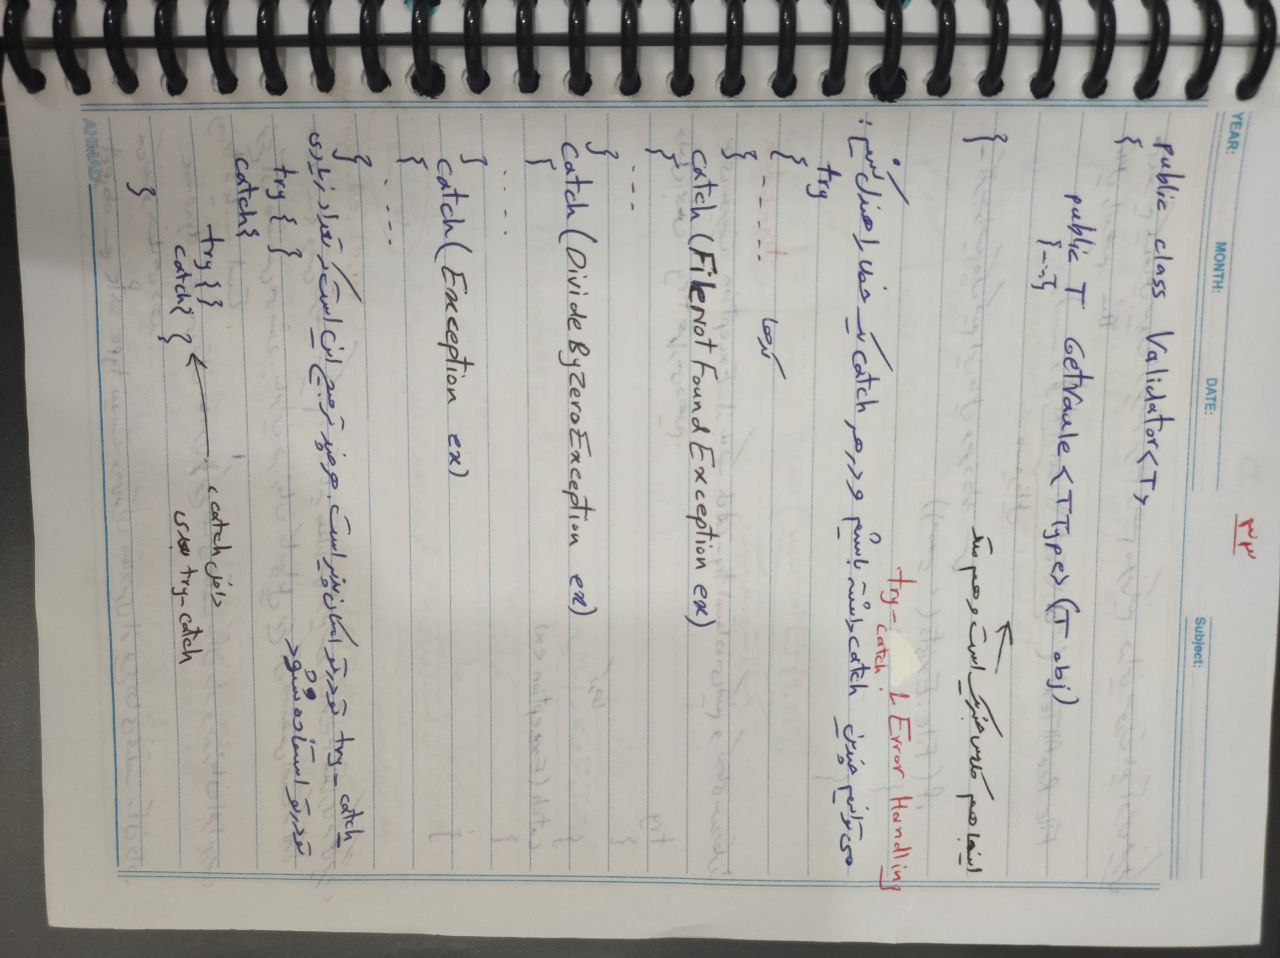 ۳۳
YEAR: MONTH: DATE: Subject:
public class Validator<T>
{
public T GetVaule <TType> (T obj)
{....}
}
اینجا هم کلاس جنریک است و هم متد
Error Handling یا try-catch
می توانیم چندین catch داشته باشیم و در هر catch یک خطا را هندل کنیم :
try
{
...... کدها
}
catch (FileNotFoundException ex)
{
...
}
catch (DivideByZeroException ex)
{
....
}
catch (Exception ex)
{
....
}
try-catch تودرتو امکان پذیر است. هرچند ترجیح این است که تعداد زیادی
تودرتو استفاده نشود
try { }
catch{
try {}
catch{ }
داخل catch،
try-catch بعدی
}
AHMADI